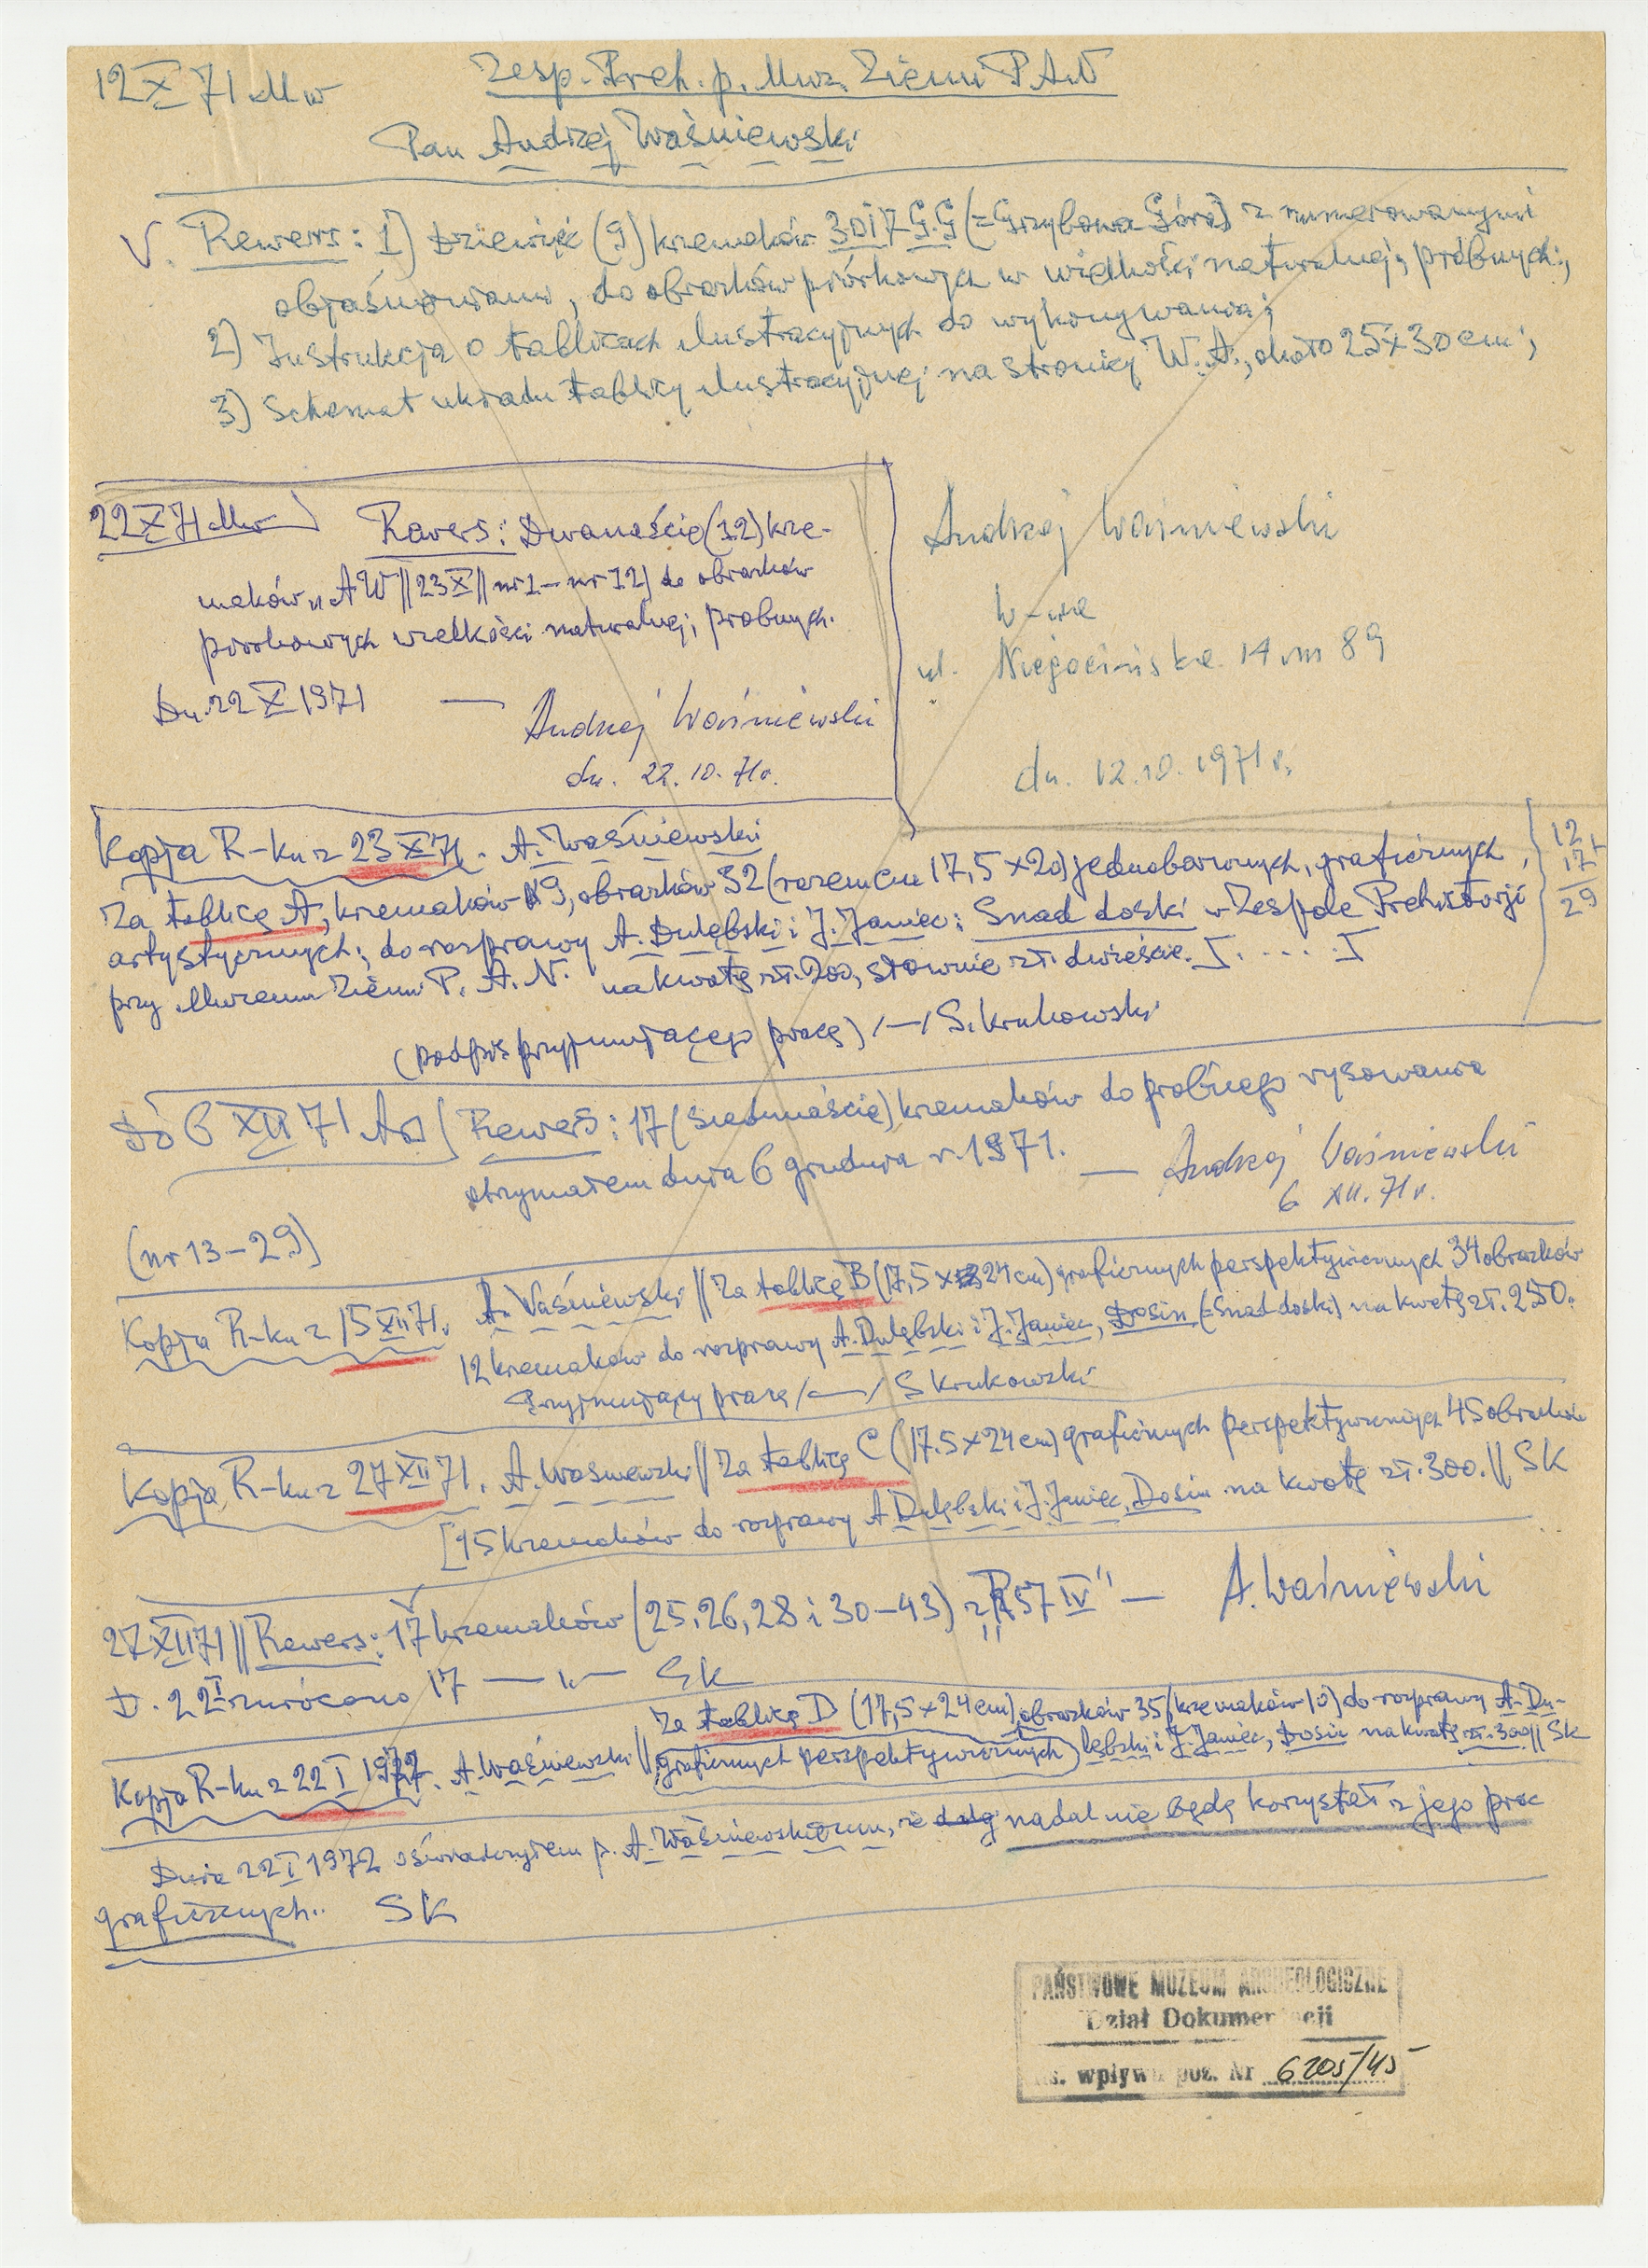 12 X 71 Mw
Zesp. Preh. p. Muz. Ziemi PAN
Pan Andrzej Waśniewski
V. Rewers: 1) Dziewięć (9) krzemaków 30 i 7 G.G (=Grzybowa Góra) z numerowanymi
objaśnieniami, do obrazków piórkowych w wielkości naturalnej, próbnych;
2) Instrukcja o tablicach ilustracyjnych do wykonywania;
3) Schemat układu tablicy ilustracyjnej na stronicy W. A., około 25×30 cm;
22 X 71 Mw
Rewers: Dwanaście (12) krze-
maków „AW || 23 X || nr 1 – nr 12) do obrazków
piórkowych wielkości naturalnej, próbnych.
Dn. 22 X 1971 — Andrzej Waśniewski
dn. 22.10.71r.
Andrzej Waśniewski
W-wa
ul. Niegocińska 14 m 89
dn. 12.10.1971 r.
Kopja R-ku z 23 XI 71. A. Waśniewski
Za tablicę A, krzemaków 9, obrazków 32 (razem cm 17,5×20) jednobarwnych, graficznych,
artystycznych; do rozprawy A. Dulębski i J. Janiec: Snad doski w Zespole Prehistorji
przy Muzeum Ziemi P. A. N. na kwotę zł. 200, słownie zł. dwieście. I. . . . . I
(podpis przyjmującego pracę) /—/ S. Krukowski
12
17+
29
Do 6 XII 71 Rewers: 17 (siedmnaście) krzemaków do próbnego rysowania
otrzymałem dnia 6 grudnia r. 1971. — Andrzej Waśniewski
6 XII. 71 r.
(nr 13–29)
Kopja R-ku z 15 XII 71. A. Waśniewski || Za tablicę B (17,5×24 cm) graficznych perspektywicznych 34 obrazków
12 krzemaków do rozprawy A. Dulębski i J. Janiec, Dosin (=Snad doski) na kwotę zł. 250.
Przyjmujący pracę /—/ S Krukowski
Kopja R-ku z 27 XII 71. A. Waśniewski || Za tablicę C (17.5×24 cm) graficznych perspektywicznych 45 obrazków
[15 krzemaków do rozprawy A Dulębski i J. Janiec, Dosin na kwotę zł. 300. || SK
27 XII 71 || Rewers: 17 krzemaków (25, 26, 28 i 30–43) z „R 57 IV" — A. Waśniewski
D. 22 I zwrócono 17 — „ — SK
Kopja R-ku z 22 I 1972. A. Waśniewski || Za tablicę D (17,5×24 cm), obrazków 35 (krzemaków 10) do rozprawy A. Du-
(graficznych perspektywicznych) lębski i J. Janiec, Dosin na kwotę zł. 300 || SK
Dnia 22 I 1972 oświadczyłem p. A. Waśniewskiemu, że nadal nie będę korzystał z jego prac
graficznych.. SK
PAŃSTWOWE MUZEUM ARCHEOLOGICZNE
Dział Dokumentacji
Ks. wpływu poz. Nr 6205/45